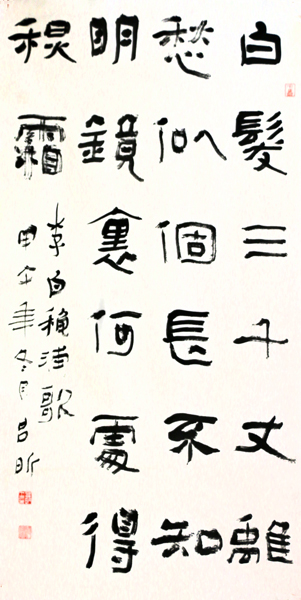 白髮三千丈離
愁似個長不知
明鏡裏何處得
秋霜
李白秋浦歌
甲午年冬月吕昕